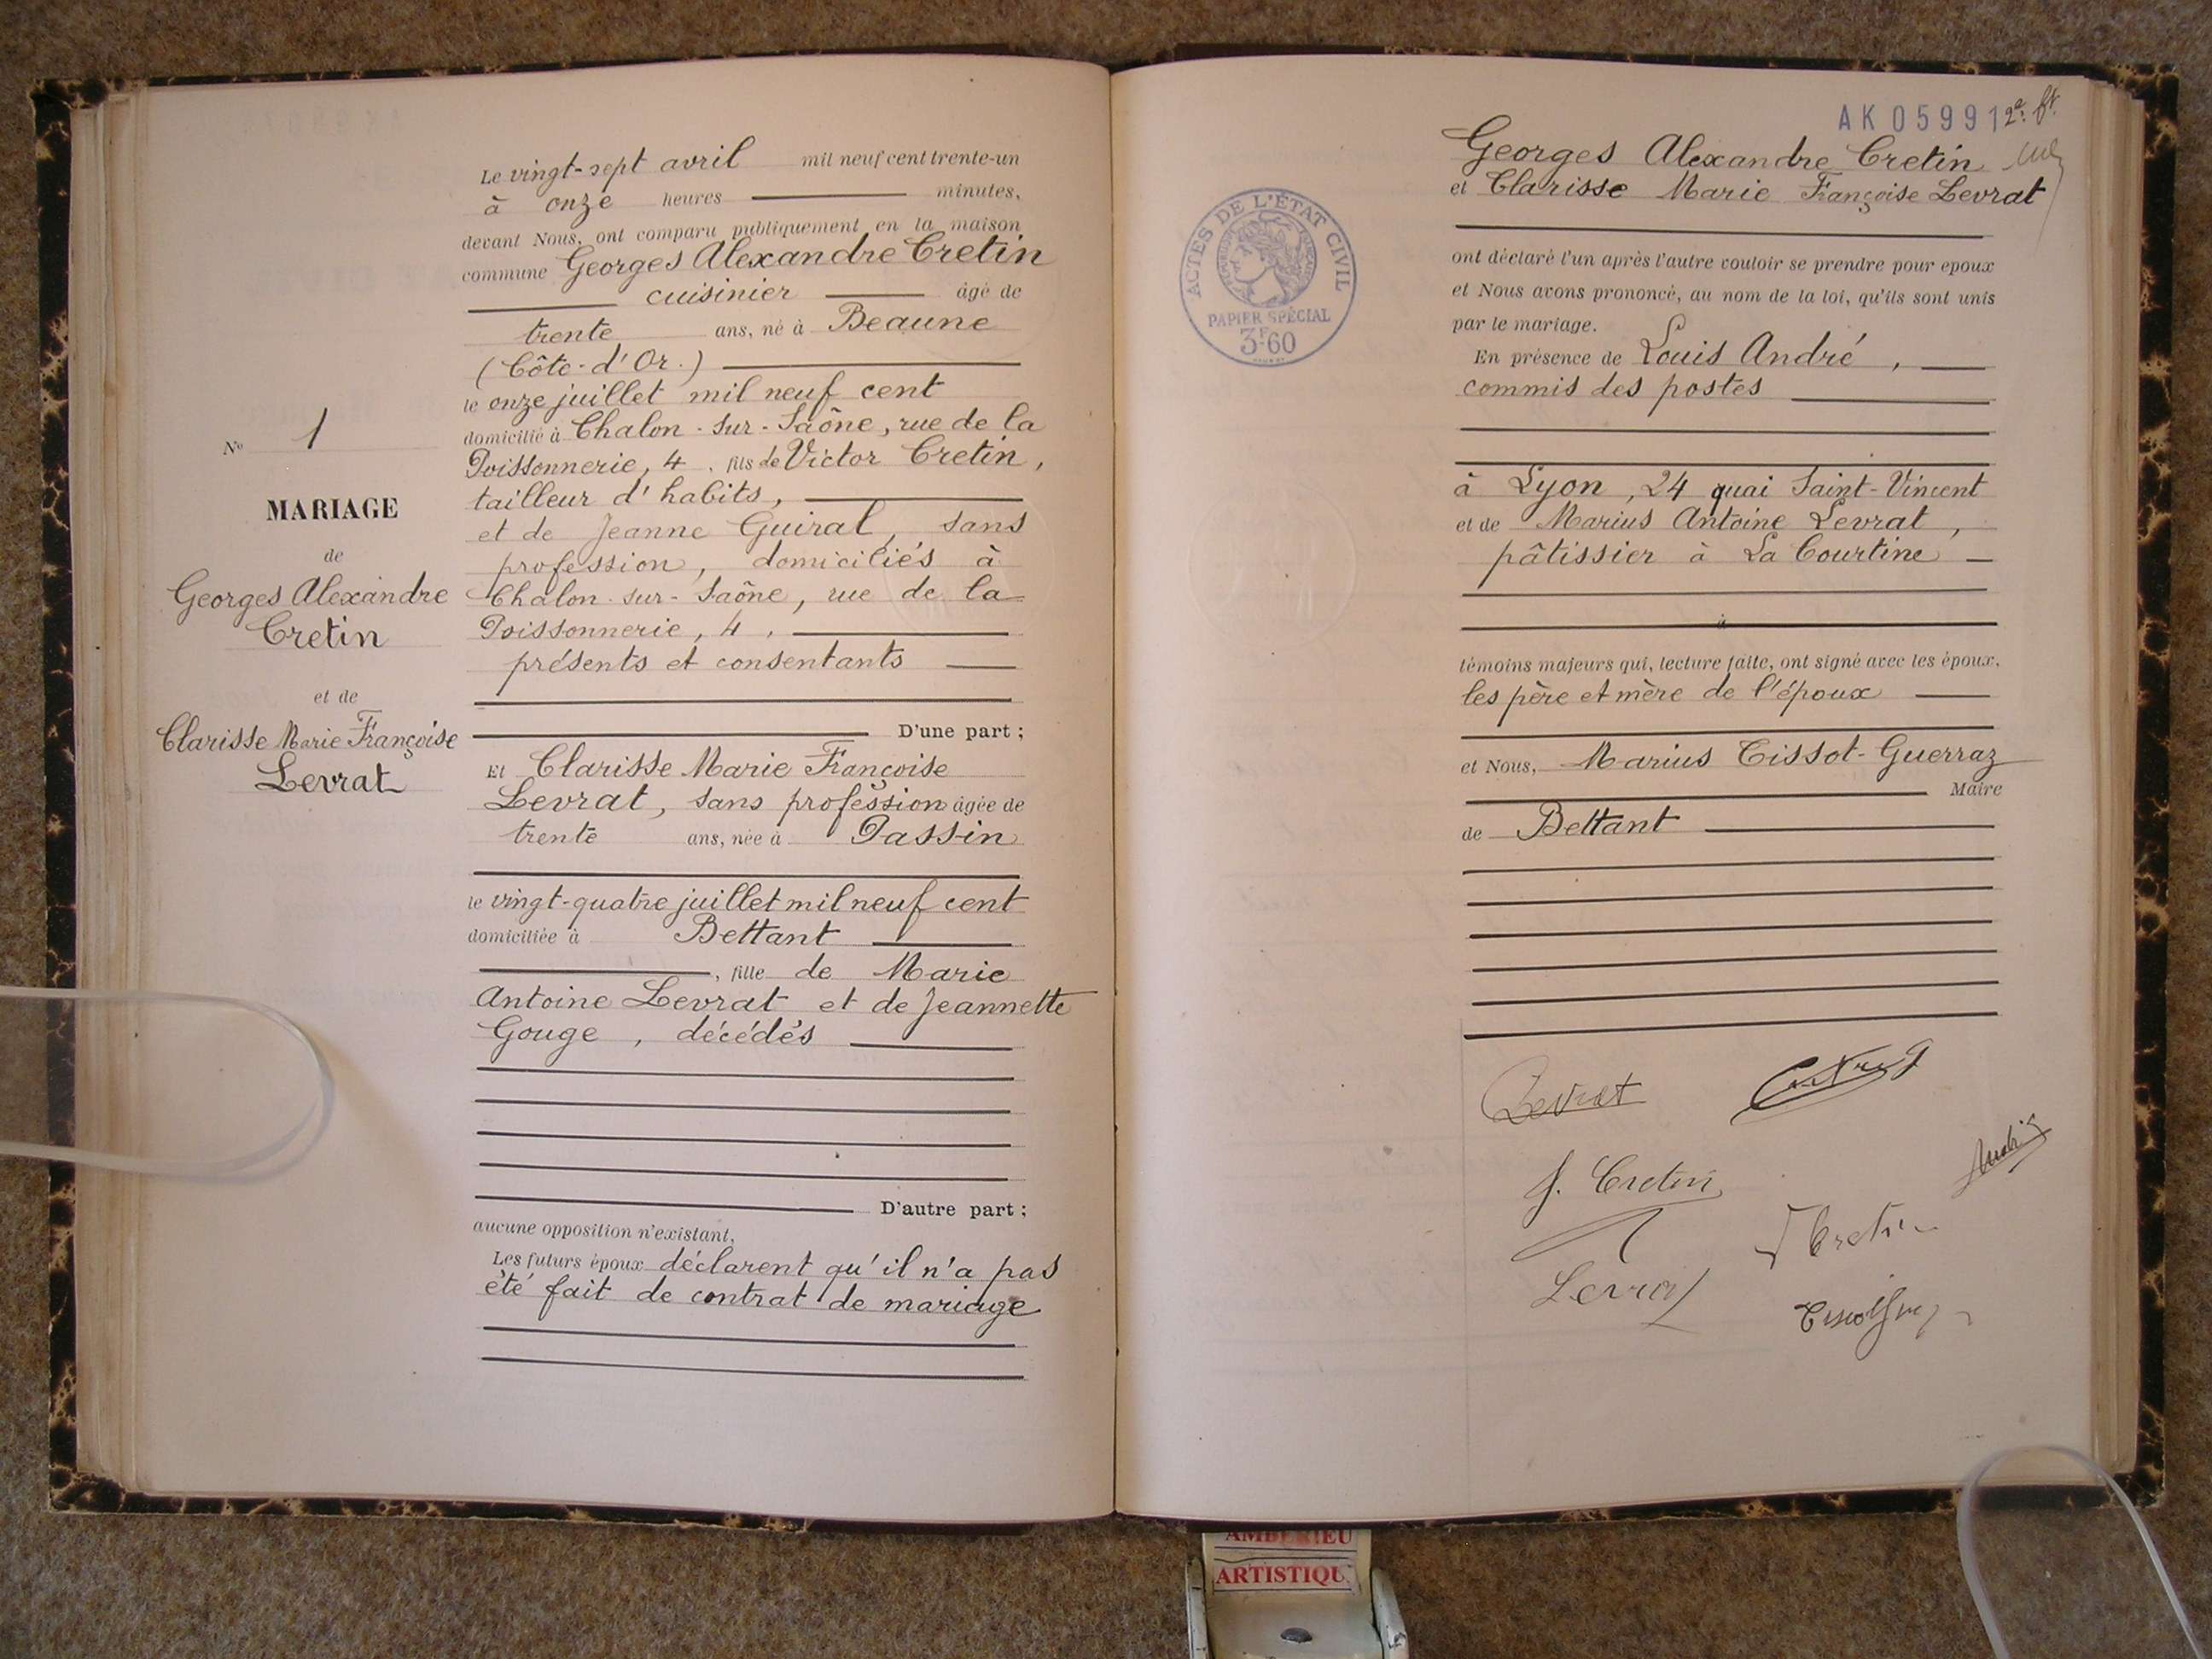 Le vingt-sept avril mil neuf cent trente-un
à onze heures minutes,
devant Nous, ont comparu publiquement en la maison
commune Georges Alexandre Cretin
cuisinier âgé de
trente ans, né à Beaune
(Côte-d'Or.)
le onze juillet mil neuf cent
domicilié à Chalon-sur-Saône, rue de la
Poissonnerie, 4, fils de Victor Cretin,
tailleur d'habits,
et de Jeanne Guiral, sans
profession, domiciliés à
Chalon-sur-Saône, rue de la
Poissonnerie, 4,
présents et consentants
D'une part;
Et Clarisse Marie Françoise
Levrat, sans profession âgée de
trente ans, née à Passin
le vingt-quatre juillet mil neuf cent
domiciliée à Bettant
, fille de Marie
Antoine Levrat et de Jeannette
Gouge, décédés
D'autre part;
aucune opposition n'existant,
Les futurs époux déclarent qu'il n'a pas
été fait de contrat de mariage
No 1
MARIAGE
de
Georges Alexandre
Cretin
et de
Clarisse Marie Françoise
Levrat
AK 05991
ACTES DE L'ÉTAT CIVIL
PAPIER SPÉCIAL
3F60
Georges Alexandre Cretin
et Clarisse Marie Françoise Levrat
ont déclaré l'un après l'autre vouloir se prendre pour epoux
et Nous avons prononcé, au nom de la loi, qu'ils sont unis
par le mariage.
En présence de Louis André,
commis des postes
à Lyon, 24 quai Saint-Vincent
et de Marius Antoine Levrat,
pâtissier à La Courtine
à
témoins majeurs qui, lecture faite, ont signé avec les époux,
les père et mère de l'époux
et Nous, Marius Tissot-Guerraz
Maire
de Bettant
Levrat
J. Cretin
André
Cretin
Levrat
AMBERIEU
ARTISTIQU